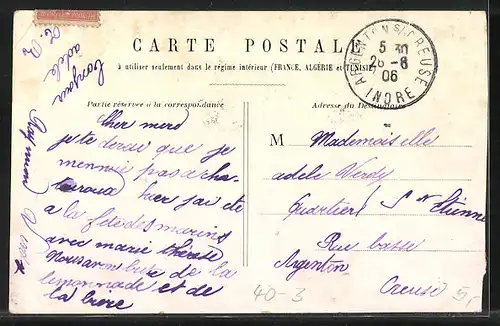 CARTE POSTALE
à utiliser seulement dans le régime intérieur (FRANCE, ALGÉRIE et TUNISIE)
ARGENTON S/ CREUSE
5 30
26 - 8
06
INDRE
Partie réservée à la correspondance
Adresse du Destinataire
bonjour
adele
cher
je te dirai que je
mennuie pas a
hier jai été
a la fete des marins
avec marie thérèse
nous avon bue de la
limonnade et de
la biere
Raymon
M Mademoiselle
adele Verdy
quartier St Etienne
Rue basse
Argenton
Creuse
40-3